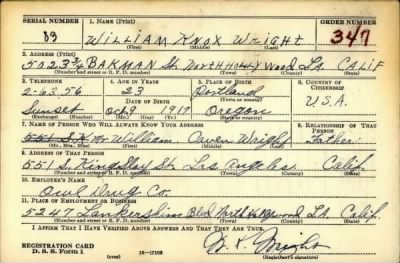 SERIAL NUMBER 1. NAME (Print) ORDER NUMBER
WILLIAM KNOX WRIGHT 347
(First) (Middle) (Last)
2. ADDRESS (Print)
5023¾ BAKMAN St. NORTH HOLLYWOOD L.A. CALIF
(Number and street or R. F. D. number) (Town) (County) (State)
3. TELEPHONE 4. AGE IN YEARS 5. PLACE OF BIRTH 6. COUNTRY OF CITIZENSHIP
2-6356 23 Portland
DATE OF BIRTH (Town or county) U.S.A.
Sunset Oct 9 1917 Oregon
(Exchange) (Number) (Mo.) (Day) (Yr.) (State or country)
7. NAME OF PERSON WHO WILL ALWAYS KNOW YOUR ADDRESS 8. RELATIONSHIP OF THAT PERSON
Mr William Owen Wright Father
(Mr., Mrs., Miss) (First) (Middle) (Last)
9. ADDRESS OF THAT PERSON
551 S. Kingsley St. Los Angeles Calif.
(Number and street or R. F. D. number) (Town) (County) (State)
10. EMPLOYER'S NAME
Owl Drug Co.
11. PLACE OF EMPLOYMENT OR BUSINESS
5247 Lankershim Blvd North Hollywood L.A. Calif.
(Number and street or R. F. D. number) (Town) (County) (State)
I AFFIRM THAT I HAVE VERIFIED ABOVE ANSWERS AND THAT THEY ARE TRUE.
REGISTRATION CARD W. K. Wright
D. S. S. Form 1 (over) (Registrant's signature)